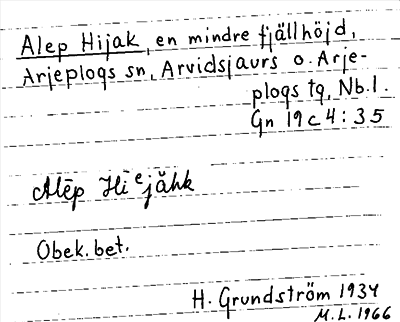 Alep Hijak, en mindre fjällhöjd,
Arjeplogs sn, Arvidsjaurs o. Arje-
plogs tg, Nb.l.
Gn 19c4:35
Alēp Hiᵉjåhk
Obek. bet.
H. Grundström 1934
M.L. 1966